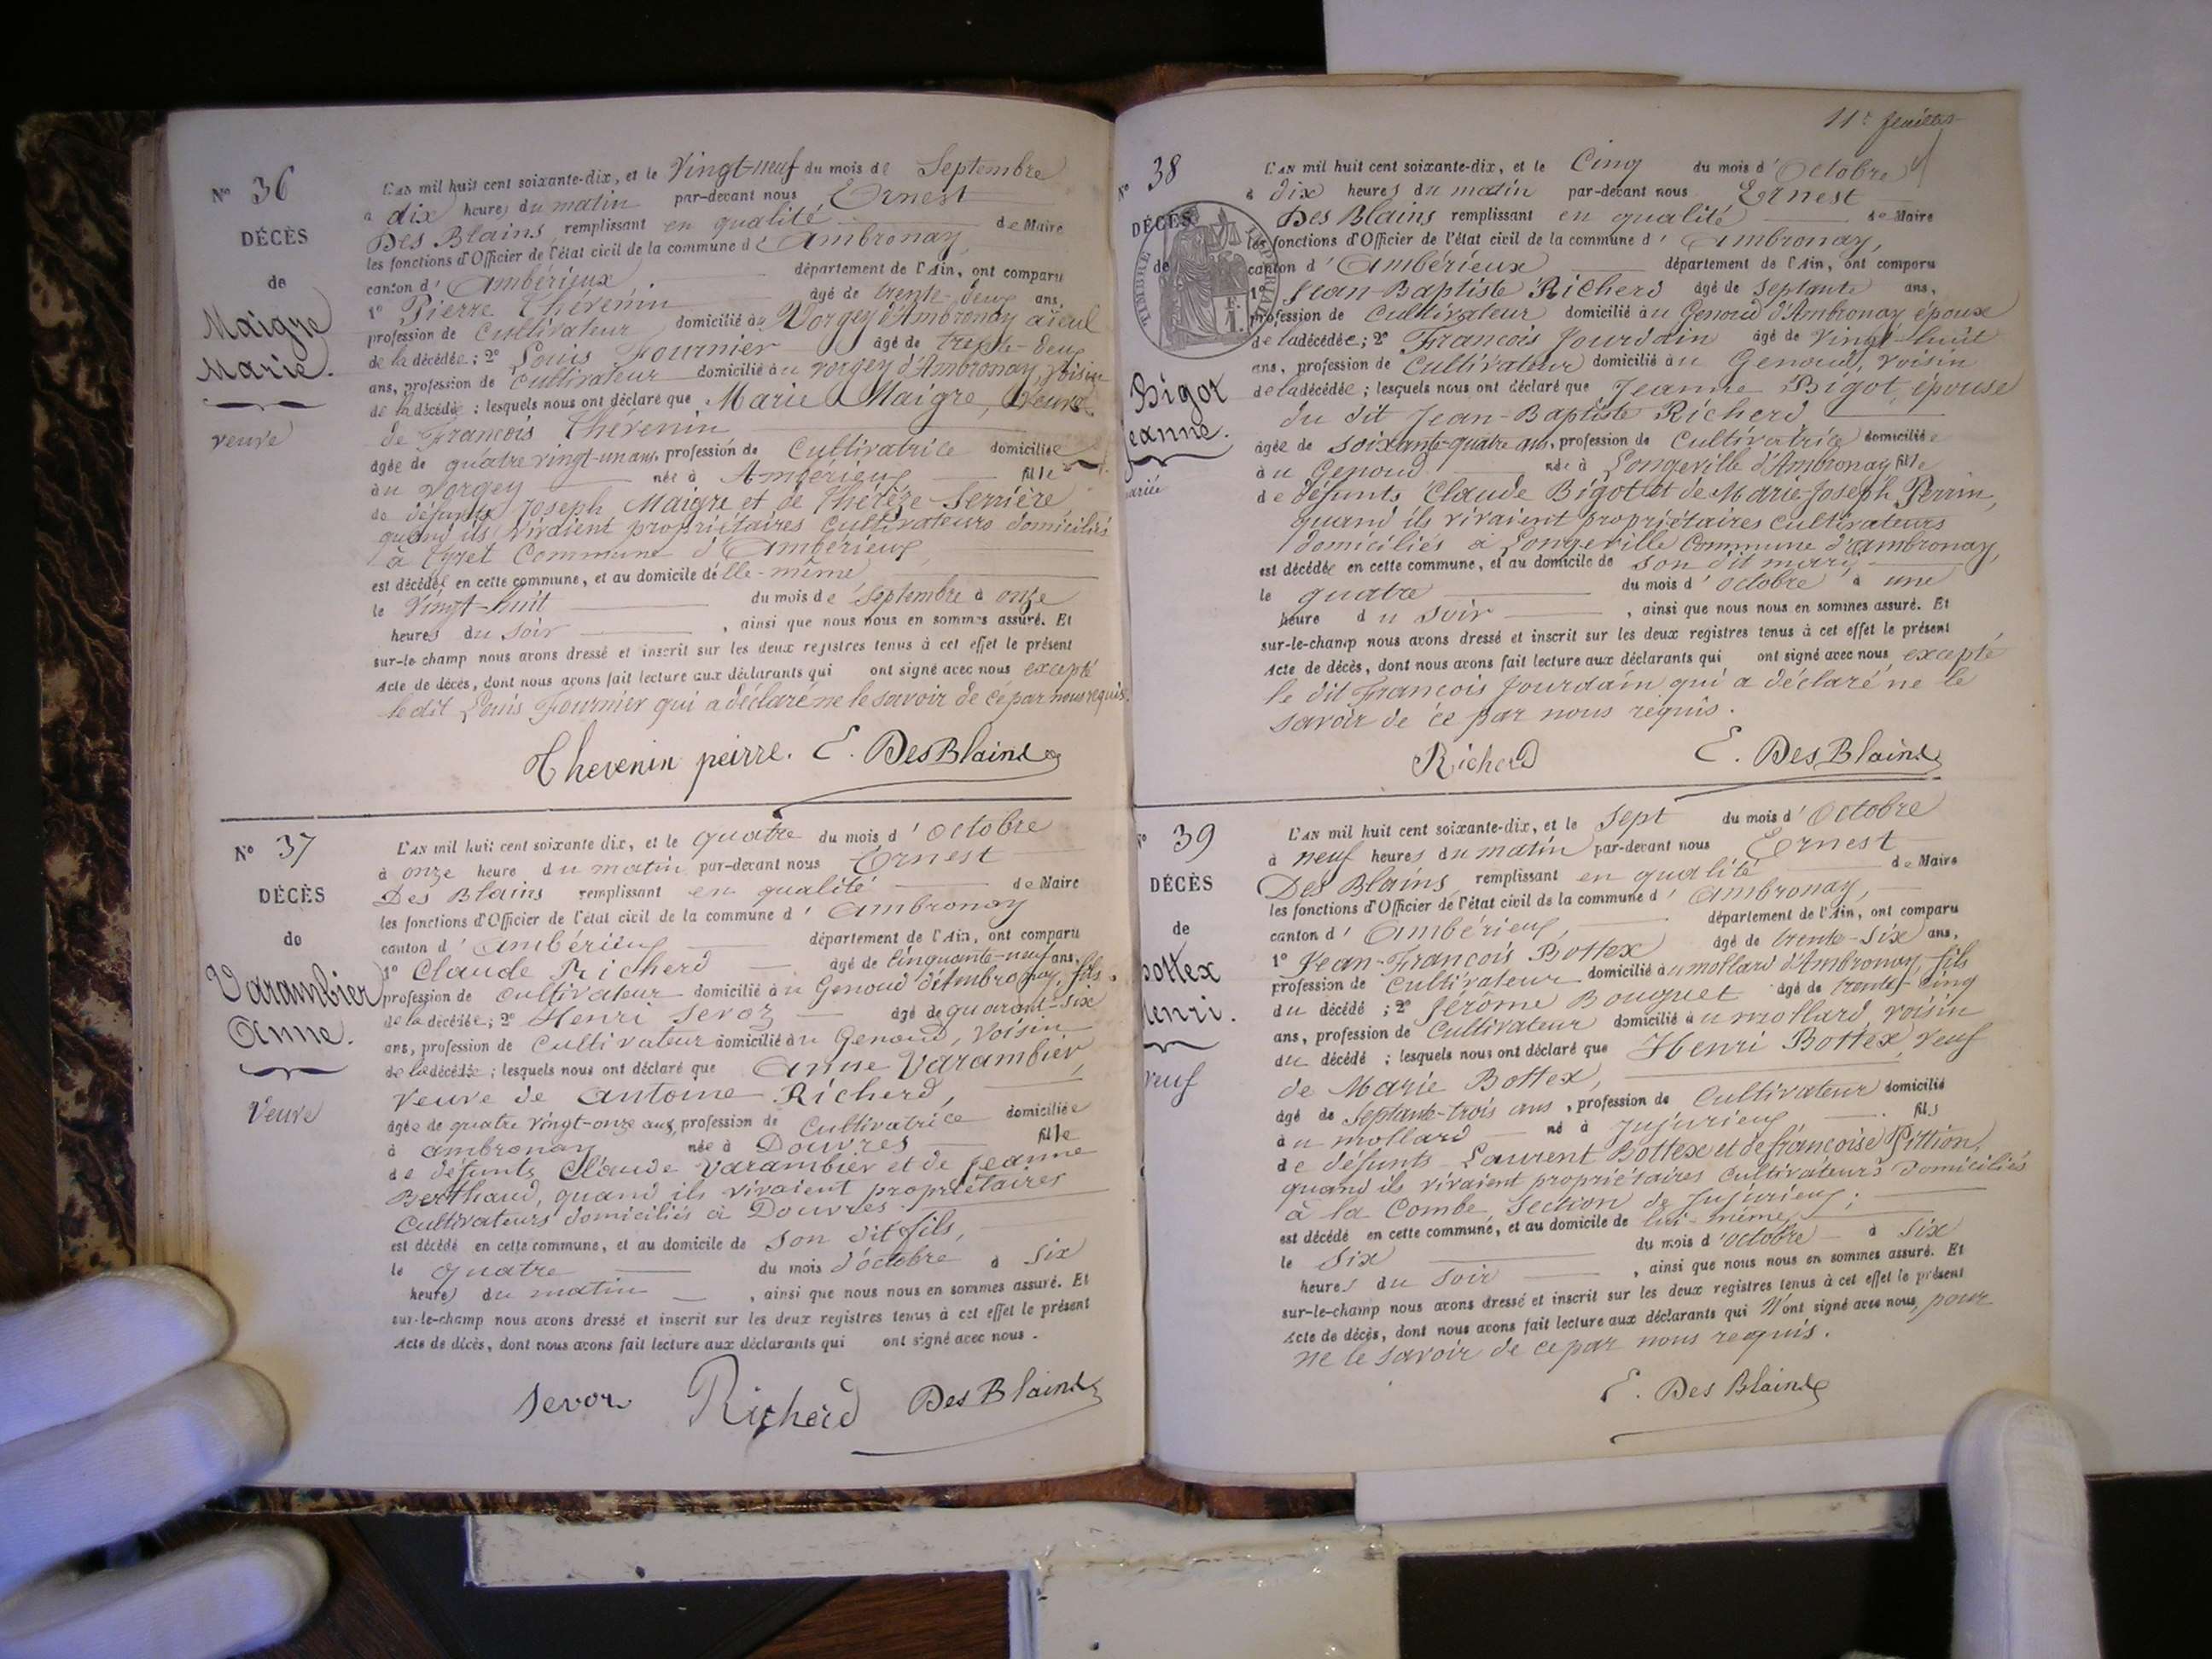 N° 36
DÉCÈS
de
Maigre
Marie.
veuve
L'AN mil huit cent soixante-dix, et le Vingt-neuf du mois de Septembre
à dix heures du matin par-devant nous Ernest
Des Blains remplissant en qualité de Maire
les fonctions d'Officier de l'état civil de la commune d' Ambronay,
canton d' Ambérieux département de l'Ain, ont comparu
1° Pierre Thévenin âgé de trente-deux ans,
profession de Cultivateur domicilié au Vorgey d'Ambronay aïeul
de la décédée ; 2° Louis Fournier âgé de trente-deux
ans, profession de cultivateur domicilié au Vorgey d'Ambronay, voisin
de la décédée ; lesquels nous ont déclaré que Marie Maigre, Veuve
de François Thévenin
âgée de quatre vingt-un ans, profession de Cultivatrice domiciliée
au Vorgey née à Ambérieux fille
de défunts Joseph Maigre et de Thérèze Serrière,
quand ils vivaient propriétaires Cultivateurs domiciliés
à Commune d'Ambérieux,
est décédée en cette commune, et au domicile d'elle-même
le Vingt-huit du mois de Septembre à onze
heures du soir , ainsi que nous nous en sommes assuré. Et
sur-le champ nous avons dressé et inscrit sur les deux registres tenus à cet effet le présent
Acte de décès, dont nous avons fait lecture aux déclarants qui ont signé avec nous excepté
le dit Louis Fournier qui a déclaré ne le savoir de ce par nous requis.
Thevenin peirre. E. DesBlains
N° 37
DÉCÈS
de
Varambier
Anne.
Veuve
L'AN mil huit cent soixante dix, et le quatre du mois d' Octobre
à onze heure du matin par-devant nous Ernest
Des Blains remplissant en qualité de Maire
les fonctions d'Officier de l'état civil de la commune d' Ambronay
canton d' Ambérieux département de l'Ain, ont comparu
1° Claude Richerd âgé de Cinquante-neuf ans,
profession de Cultivateur domicilié au Genoud d'Ambronay, fils
de la décédée ; 2° Henri Sevoz âgé de quarant-six
ans, profession de Cultivateur domicilié au Genoud, Voisin
de la décédée ; lesquels nous ont déclaré que Anne Varambier,
Veuve de Antoine Richerd,
âgée de quatre vingt-onze ans, profession de Cultivatrice domiciliée
à Ambronay née à Douvres fille
de défunts Claude Varambier et de Jeanne
Berthaud, quand ils vivaient propriétaires
Cultivateurs domiciliés à Douvres
est décédé en cette commune, et au domicile de son dit fils,
le quatre du mois d'octobre à six
heures du matin , ainsi que nous nous en sommes assuré. Et
sur-le-champ nous avons dressé et inscrit sur les deux registres tenus à cet effet le présent
Acte de décès, dont nous avons fait lecture aux déclarants qui ont signé avec nous.
Richerd DesBlains
11e feuillet
N° 38
DÉCÈS
de
Bigot
Jeanne.
mariée
TIMBRE IMPÉRIAL
L'AN mil huit cent soixante-dix, et le Cinq du mois d' Octobre
à dix heures du matin par-devant nous Ernest
Des Blains remplissant en qualité de Maire
les fonctions d'Officier de l'état civil de la commune d' Ambronay,
canton d' Ambérieux département de l'Ain, ont comparu
1° Jean-Baptiste Richerd âgé de Septante ans,
profession de Cultivateur domicilié au Genoud d'Ambronay époux
de la décédée ; 2° François Jourdain âgé de Vingt-huit
ans, profession de Cultivateur domicilié au Genoud, voisin
de la décédée ; lesquels nous ont déclaré que Jeanne Bigot, épouse
du dit Jean-Baptiste Richerd
âgée de soixante-quatre ans, profession de Cultivatrice domiciliée
au Genoud née à Longeville d'Ambronay fille
de défunts Claude Bigot et de Marie-Joseph Perrin,
quand ils vivaient propriétaires cultivateurs
domiciliés à Longeville Commune d'Ambronay,
est décédée en cette commune, et au domicile de son dit mary
le quatre du mois d' octobre à une
heure du soir , ainsi que nous nous en sommes assuré. Et
sur-le-champ nous avons dressé et inscrit sur les deux registres tenus à cet effet le présent
Acte de décès, dont nous avons fait lecture aux déclarants qui ont signé avec nous excepté
le dit François Jourdain qui a déclaré ne le
savoir de ce par nous requis.
Richerd E. DesBlains
N° 39
DÉCÈS
de
Bottex
Henri.
veuf
L'AN mil huit cent soixante-dix, et le Sept du mois d' Octobre
à neuf heures du matin par-devant nous Ernest
Des Blains remplissant en qualité de Maire
les fonctions d'Officier de l'état civil de la commune d' Ambronay,
canton d' Ambérieux, département de l'Ain, ont comparu
1° Jean-François Bottex âgé de trente-six ans,
profession de Cultivateur domicilié au mollard d'Ambronay fils
du décédé ; 2° Jérôme Bouquet âgé de trente-cinq
ans, profession de Cultivateur domicilié au mollard, voisin
du décédé ; lesquels nous ont déclaré que Henri Bottex, Veuf
de Marie Bottex,
âgé de Septante-trois ans, profession de Cultivateur domicilié
au mollard né à Jujurieux fils
de défunts Laurent Bottex et de françoise Pittion,
quand ils vivaient propriétaires Cultivateurs domiciliés
à la Combe, Section de Jujurieux ;
est décédé en cette commune, et au domicile de lui-même
le six du mois d'octobre à six
heures du soir , ainsi que nous nous en sommes assuré. Et
sur-le-champ nous avons dressé et inscrit sur les deux registres tenus à cet effet le présent
Acte de décès, dont nous avons fait lecture aux déclarants qui N'ont signé avec nous, pour
ne le savoir de ce par nous requis.
E. Des Blains